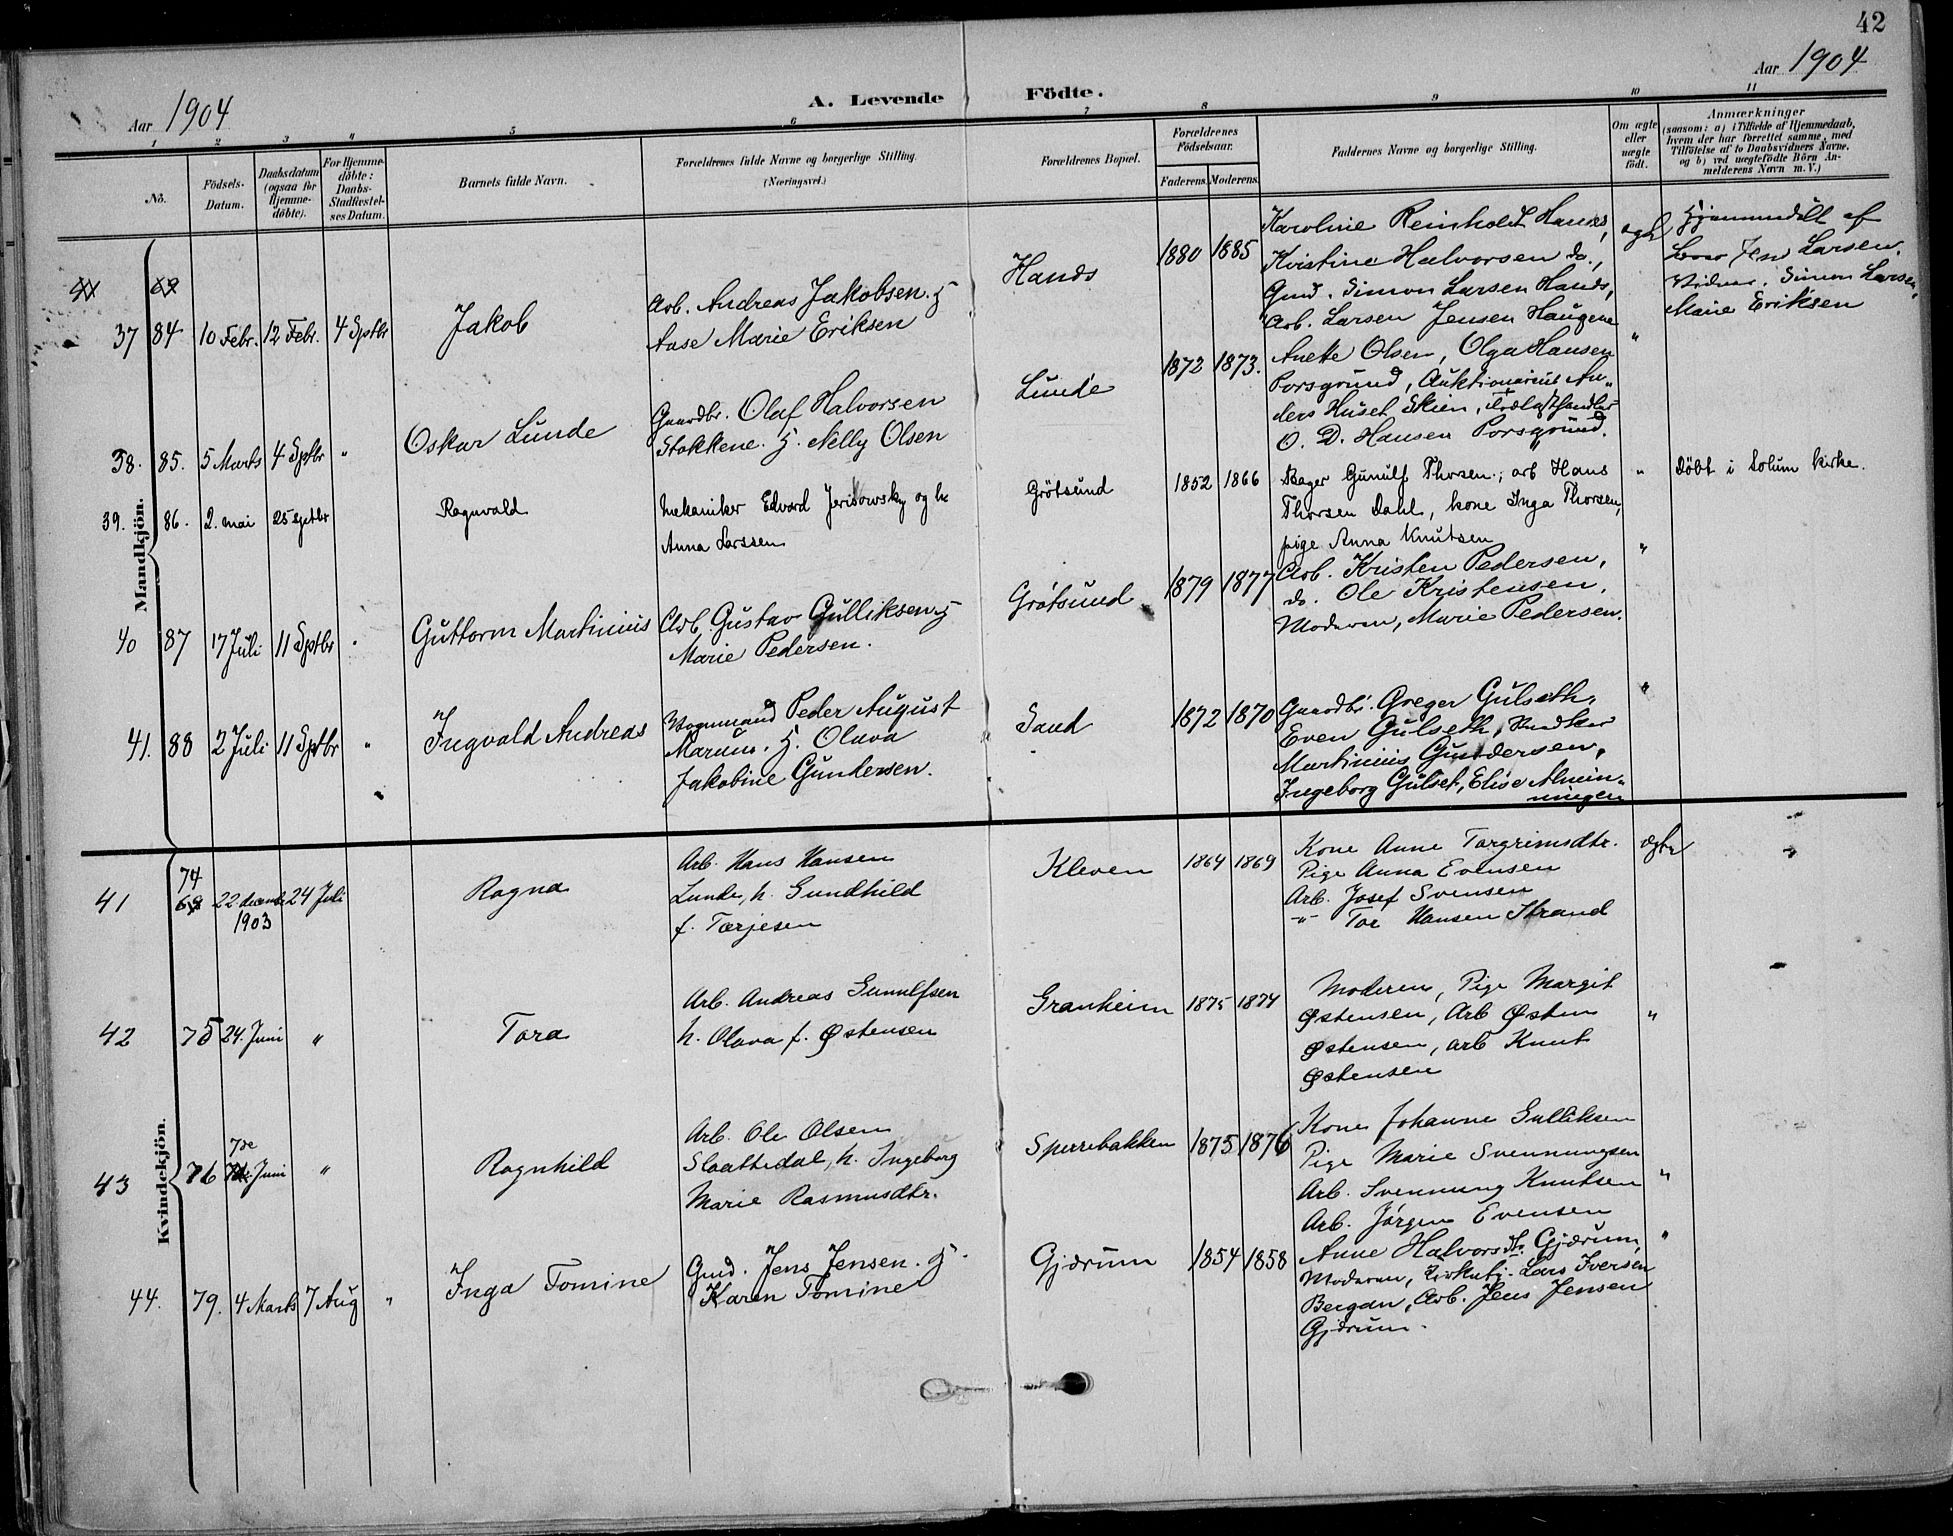 42
Aar 1904
Aar 1904
A. Levende Födte.
1 2 3 4 5 6 7 8 9 10 11
No.
Födsels-Datum.
Daabsdatum (ogsaa for Hjemme-döbte).
For Hjemme-döbte: Daabs-Stadfæstel-ses Datum.
Barnets fulde Navn.
Forældrenes fulde Navne og borgerlige Stilling.
(Næringsvei.)
Forældrenes Bopæl.
Forældrenes Födselsaar.
Faderens. Moderens.
Faddernes Navne og borgerlige Stilling.
Om ægte eller uægte födt.
Anmærkninger
(saasom: a) i Tilfælde af Hjemmedaab,
hvem der har forrettet samme, med
Tilföielse af to Daabsvidners Navne.
og b) ved uægtefödte Börn An-
melderens Navn m. V.)
Mandkjön.
37 84 10 Febr. 12 Febr. 4 Sptbr
Jakob
Arb. Andreas Jakobsen. H.
Aase Marie Eriksen
Hands
1880 1885
Karoline Reinholdt Hands,
Kristine Halvorsen do.,
Gmd. Simon Larsen Hands,
Arb. Larsen Jensen Haugene
Hjemmedöbt af
Larsen.
Vidner. Simon Larsen,
Marie Eriksen
38. 85. 5 Marts 4 Sptbr "
Oskar Lunde
Gaardbr. Olaf Halvorsen
Stokkene. H. Nelly Olsen
Lunde
1872 1873.
"
Anette Olsen, Olga Hansen
Porsgrund, Auktionarius An-
ders Huset Skien, Trælasthandler
O. D. Hansen Porsgrund.
39. 86. 2. mai 25 septbr
Ragnvald
Mekaniker Edvard Jerisowsky og h
Anna Larssen
Grötsund
1852 1866
Bager Gunulf Thorsen; arb Hans
Thorsen Dahl, kone Inga Thorsen,
pige Anna Knutsen
"
Döbt i Solum kirke.
40 87 17 Juli 11 Sptbr "
Guttorm Martinius
Arb. Gustav Gulliksen H.
Marie Pedersen.
Grötsund
1879 1877
Arb. Kristen Pedersen,
do. Ole Kristensen,
Moderen, Marie Pedersen.
"
41. 88 2 Juli 11 Sptbr "
Ingvald Andreas
Vognmand Peder August
Marius. H. Olava
Jakobine Gundersen.
Sand
1872 1870
Gaardbr. Greger Gulseth,
Even Gulseth, Snedker
Martinius Gundersen,
Ingeborg Gulset, Elise Almin-
ningen
"
Kvindekjön.
41 74 22 decemb 1903 24 Juli
Ragna
Arb. Hans Hansen
Lunde, h. Gundhild
f. Tærjesen
Kleven
1864 1869
Kone Anne Torgrimsdtr.
Pige Anna Evensen
Arb. Josef Svensen
-"- Tor Hansen Strand
ægte
42 75 24. Juni "
Tora
Arb. Andreas Gunulfsen
h. Olava f. Østensen
Granheim
1875 1874
Moderen, Pige Margit
Østensen, Arb Østen
Østensen, arb Knut
Østensen
"
43 76 7de Juni "
Ragnhild
Arb. Ole Olsen
Slaattedal, h. Ingeborg
Marie Rasmusdtr.
Sperrebakken
1875 1876
Kone Johanne Gulliksen
Pige Marie Svenningsen
Arb. Svennung Knutsen
Arb. Jörgen Evensen
"
44. 79. 4 Marts 7 Aug "
Inga Tomine
Gmd. Jens Jensen. H.
Karen Tomine
Gjærum
1854 1858
Anne Halvorsdt. Gjærum,
Moderen, Kirketj. Lars Iversen
Bergan, Arb. Jens Jensen
Gjærum.
"